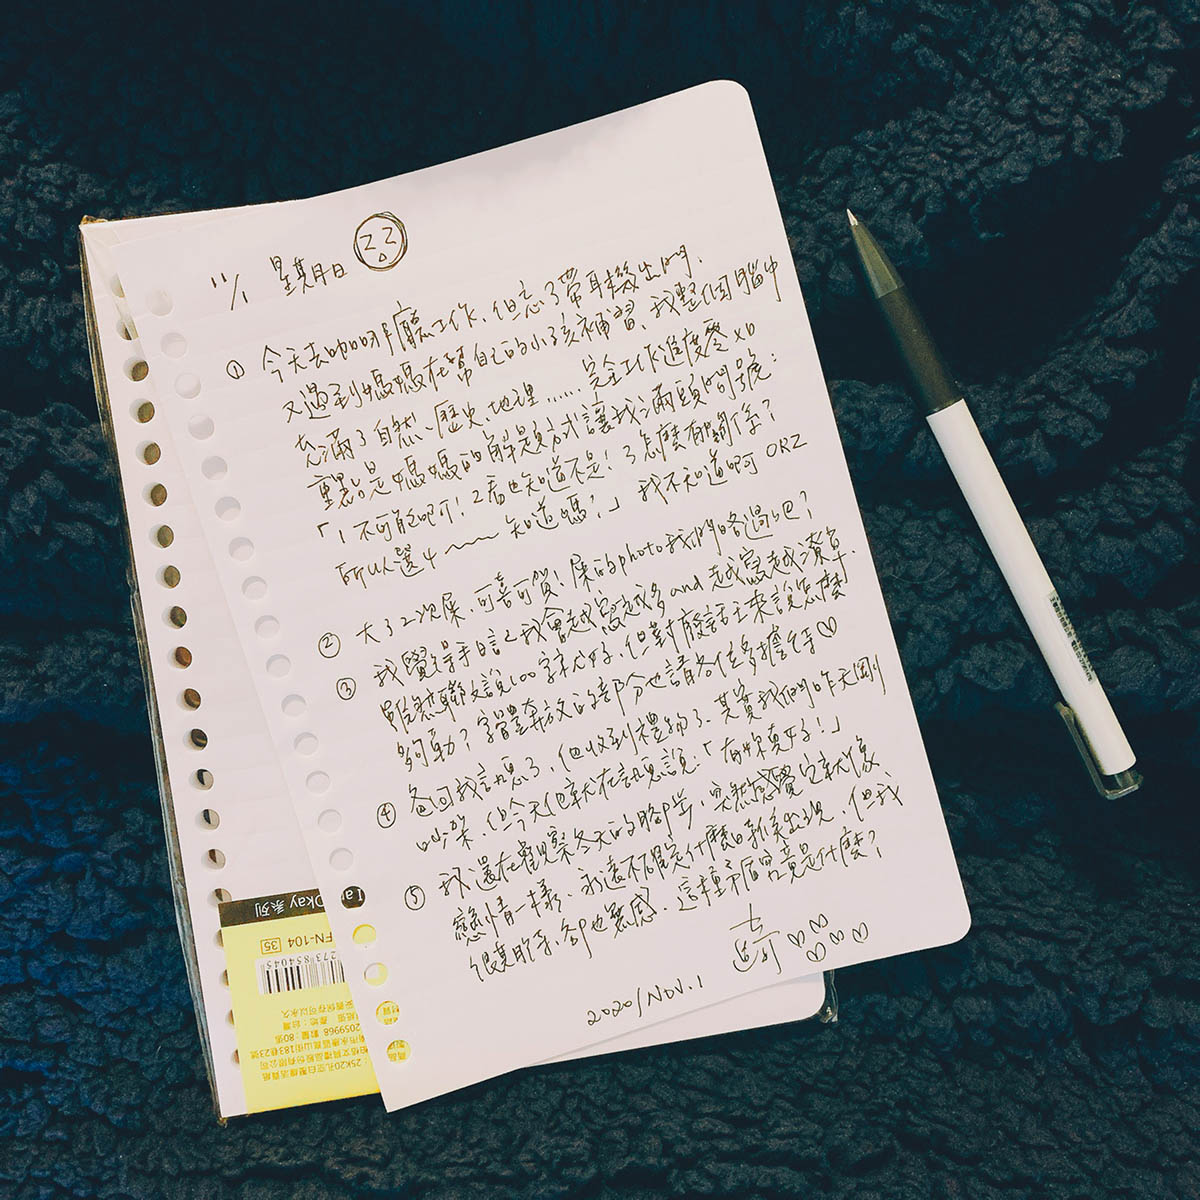 11/1 星期日
① 今天去咖啡廳工作、但忘了帶耳機出門、
又遇到媽媽在幫自己的小孩補習、我整個腦中
充滿了自然、歷史、地理……完全工作進度零xD
重點是媽媽的解題方式讓我滿頭問號:
「1不可能啊!2看也知道不是!3怎麼有關係?
所以選4~~~知道嗎?」我不知道啊 ORZ
② 大了2次屎、可喜可賀!屎的photo我們略過吧?
③ 我覺得手日記我會越寫越多and越寫越潦草.
雖然聯文說100字就好、但對廢話王來說怎麼
夠勒?字體奔放的部分也請各位多擔待♡
④ 爸回我訊息了、他收到禮物了、其實我們昨天剛
吵架、但今天他就在訊息說:「有妳真好!」
⑤ 我還在觀察冬天的腳步、突然感覺它就像
戀情一樣、永遠不確定什麼時候會出現、但我
很期待、卻也無感、這種矛盾究竟是什麼?
2020/NOV.1 ♡♡♡♡
Okay 系列
FN-104 35
273854045
25K20孔空白雙線活頁紙
數量:80張
產地:台灣